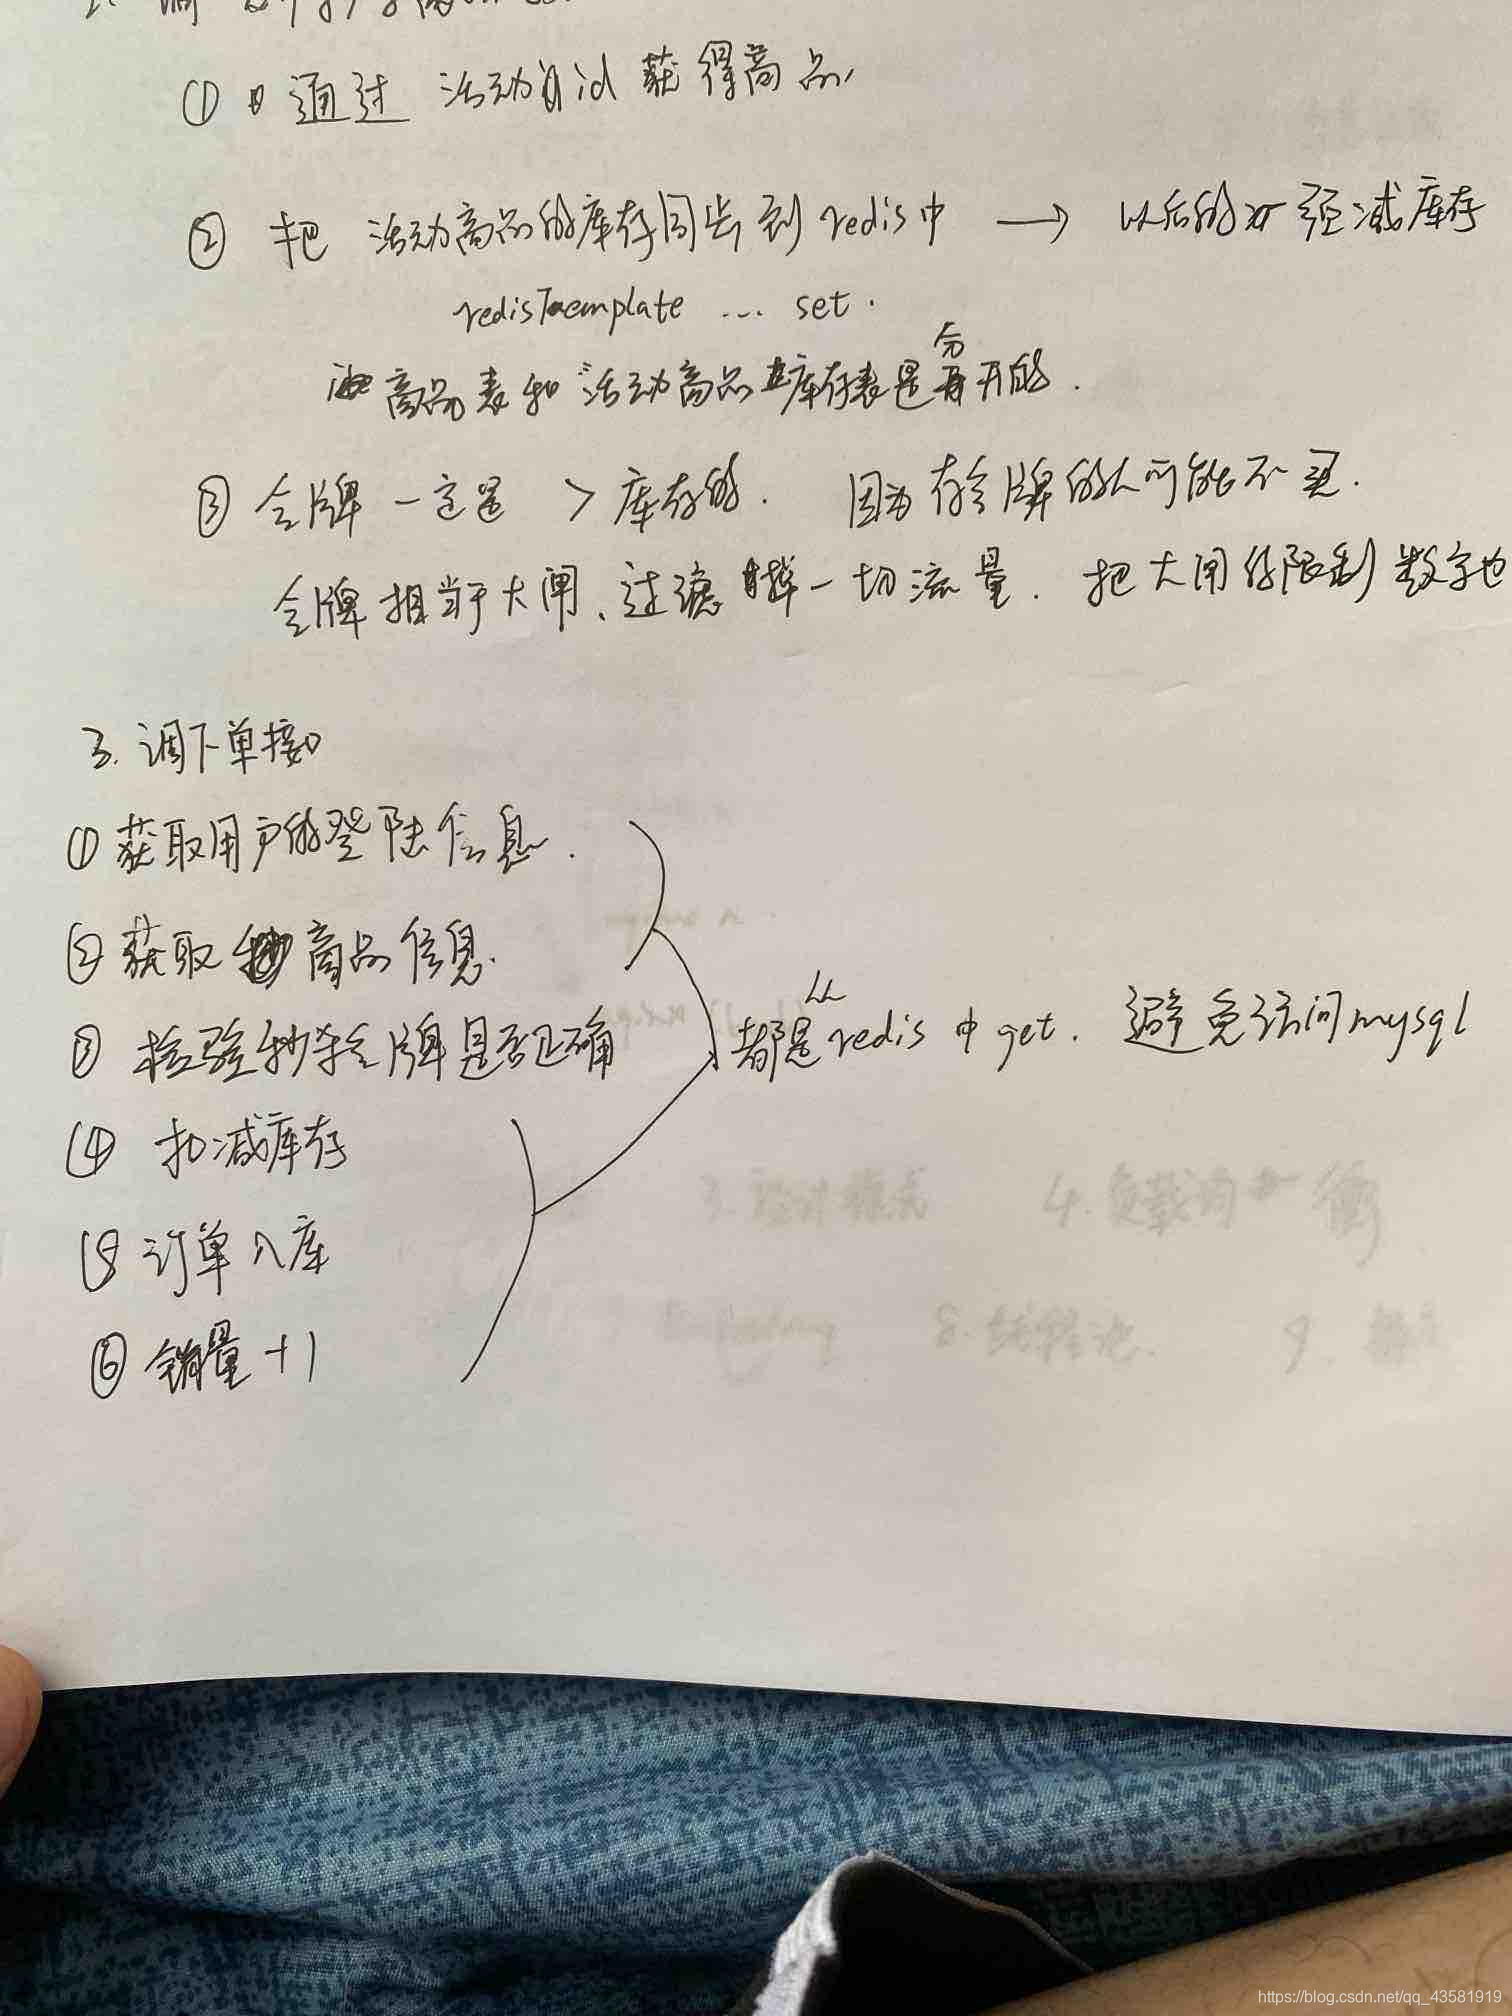 ① 通过 活动id 获得商品,
② 把 活动商品的库存同步到redis中 → 以后的 减库存
redisTaemplate ... set.
商品表和活动商品库存表是分开的.
③ 令牌一定是 > 库存的. 因为有令牌的人可能不买.
令牌相当于大闸、过滤掉一切流量. 把大闸的限制数字也
3. 调下单接口
① 获取用户的登陆信息.
② 获取 商品信息.
③ 检验秒杀令牌是否正确
都是从redis中get. 避免访问mysql
④ 扣减库存
⑤ 订单入库
⑥ 销量+1
3. 设计模式 4. 负载均衡
8. 线程池. 9.
https://blog.csdn.net/qq_43581919